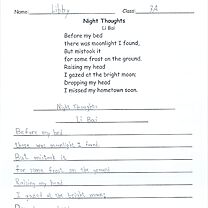 Name: Libby Class: 3A
Night Thoughts
Li Bai
Before my bed
there was moonlight I found,
But mistook it
for some frost on the ground.
Raising my head
I gazed at the bright moon;
Dropping my head
I missed my hometown soon.
Night Thoughts
Li Bai
Before my bed
there was moonlight I found.
But mistook it
for some frost on the ground.
Raising my head
I gazed at the bright moon;